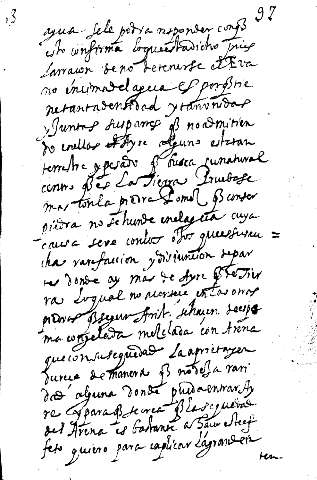 97
agua. sele podia responder con q̃
esto confirma lo que esta dicho pues
la raçon de no detenerse el Eva
no encima del agua es por q̃ tie
ne tanta densidad y tan unidas
y juntas sus partes q̃ no admitien
do en ellas el Ayre alguno es tan
terrestre y pesado q̃ busca su natural
centro q̃ es La tierra Pruebase
mas con la piedra Pomez q̃ con ser
piedra no se hunde en el agua cuya
causa se ve con los ojos que es su mu
cha rarefaccion y disjuncion de par
tes donde ay mas de Ayre q̃ de tier
ra Lo qual no acaesce en las otras
piedras q̃ segun Arist. se hacen de espu
ma congelada mezclada con Arena
que con su sequedad La aprieta y en
durece de manera q̃ no dexa rari
dad alguna donde pueda entrar Ay
re y para q̃ se crea q̃ la sequedad
del Arena es bastante a hacer este ef
feto quiero para explicar La grande in
ten.